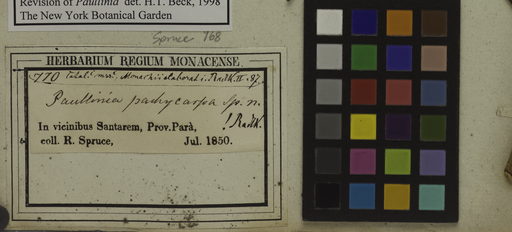 Revision of Paullinia det. H.T. Beck, 1998
The New York Botanical Garden
Spruce 768
HERBARIUM REGIUM MONACENSE.
710
Paullinia pachycarpa sp. n.
! Radlk.
In vicinibus Santarem, Prov. Parà,
coll. R. Spruce, Jul. 1850.